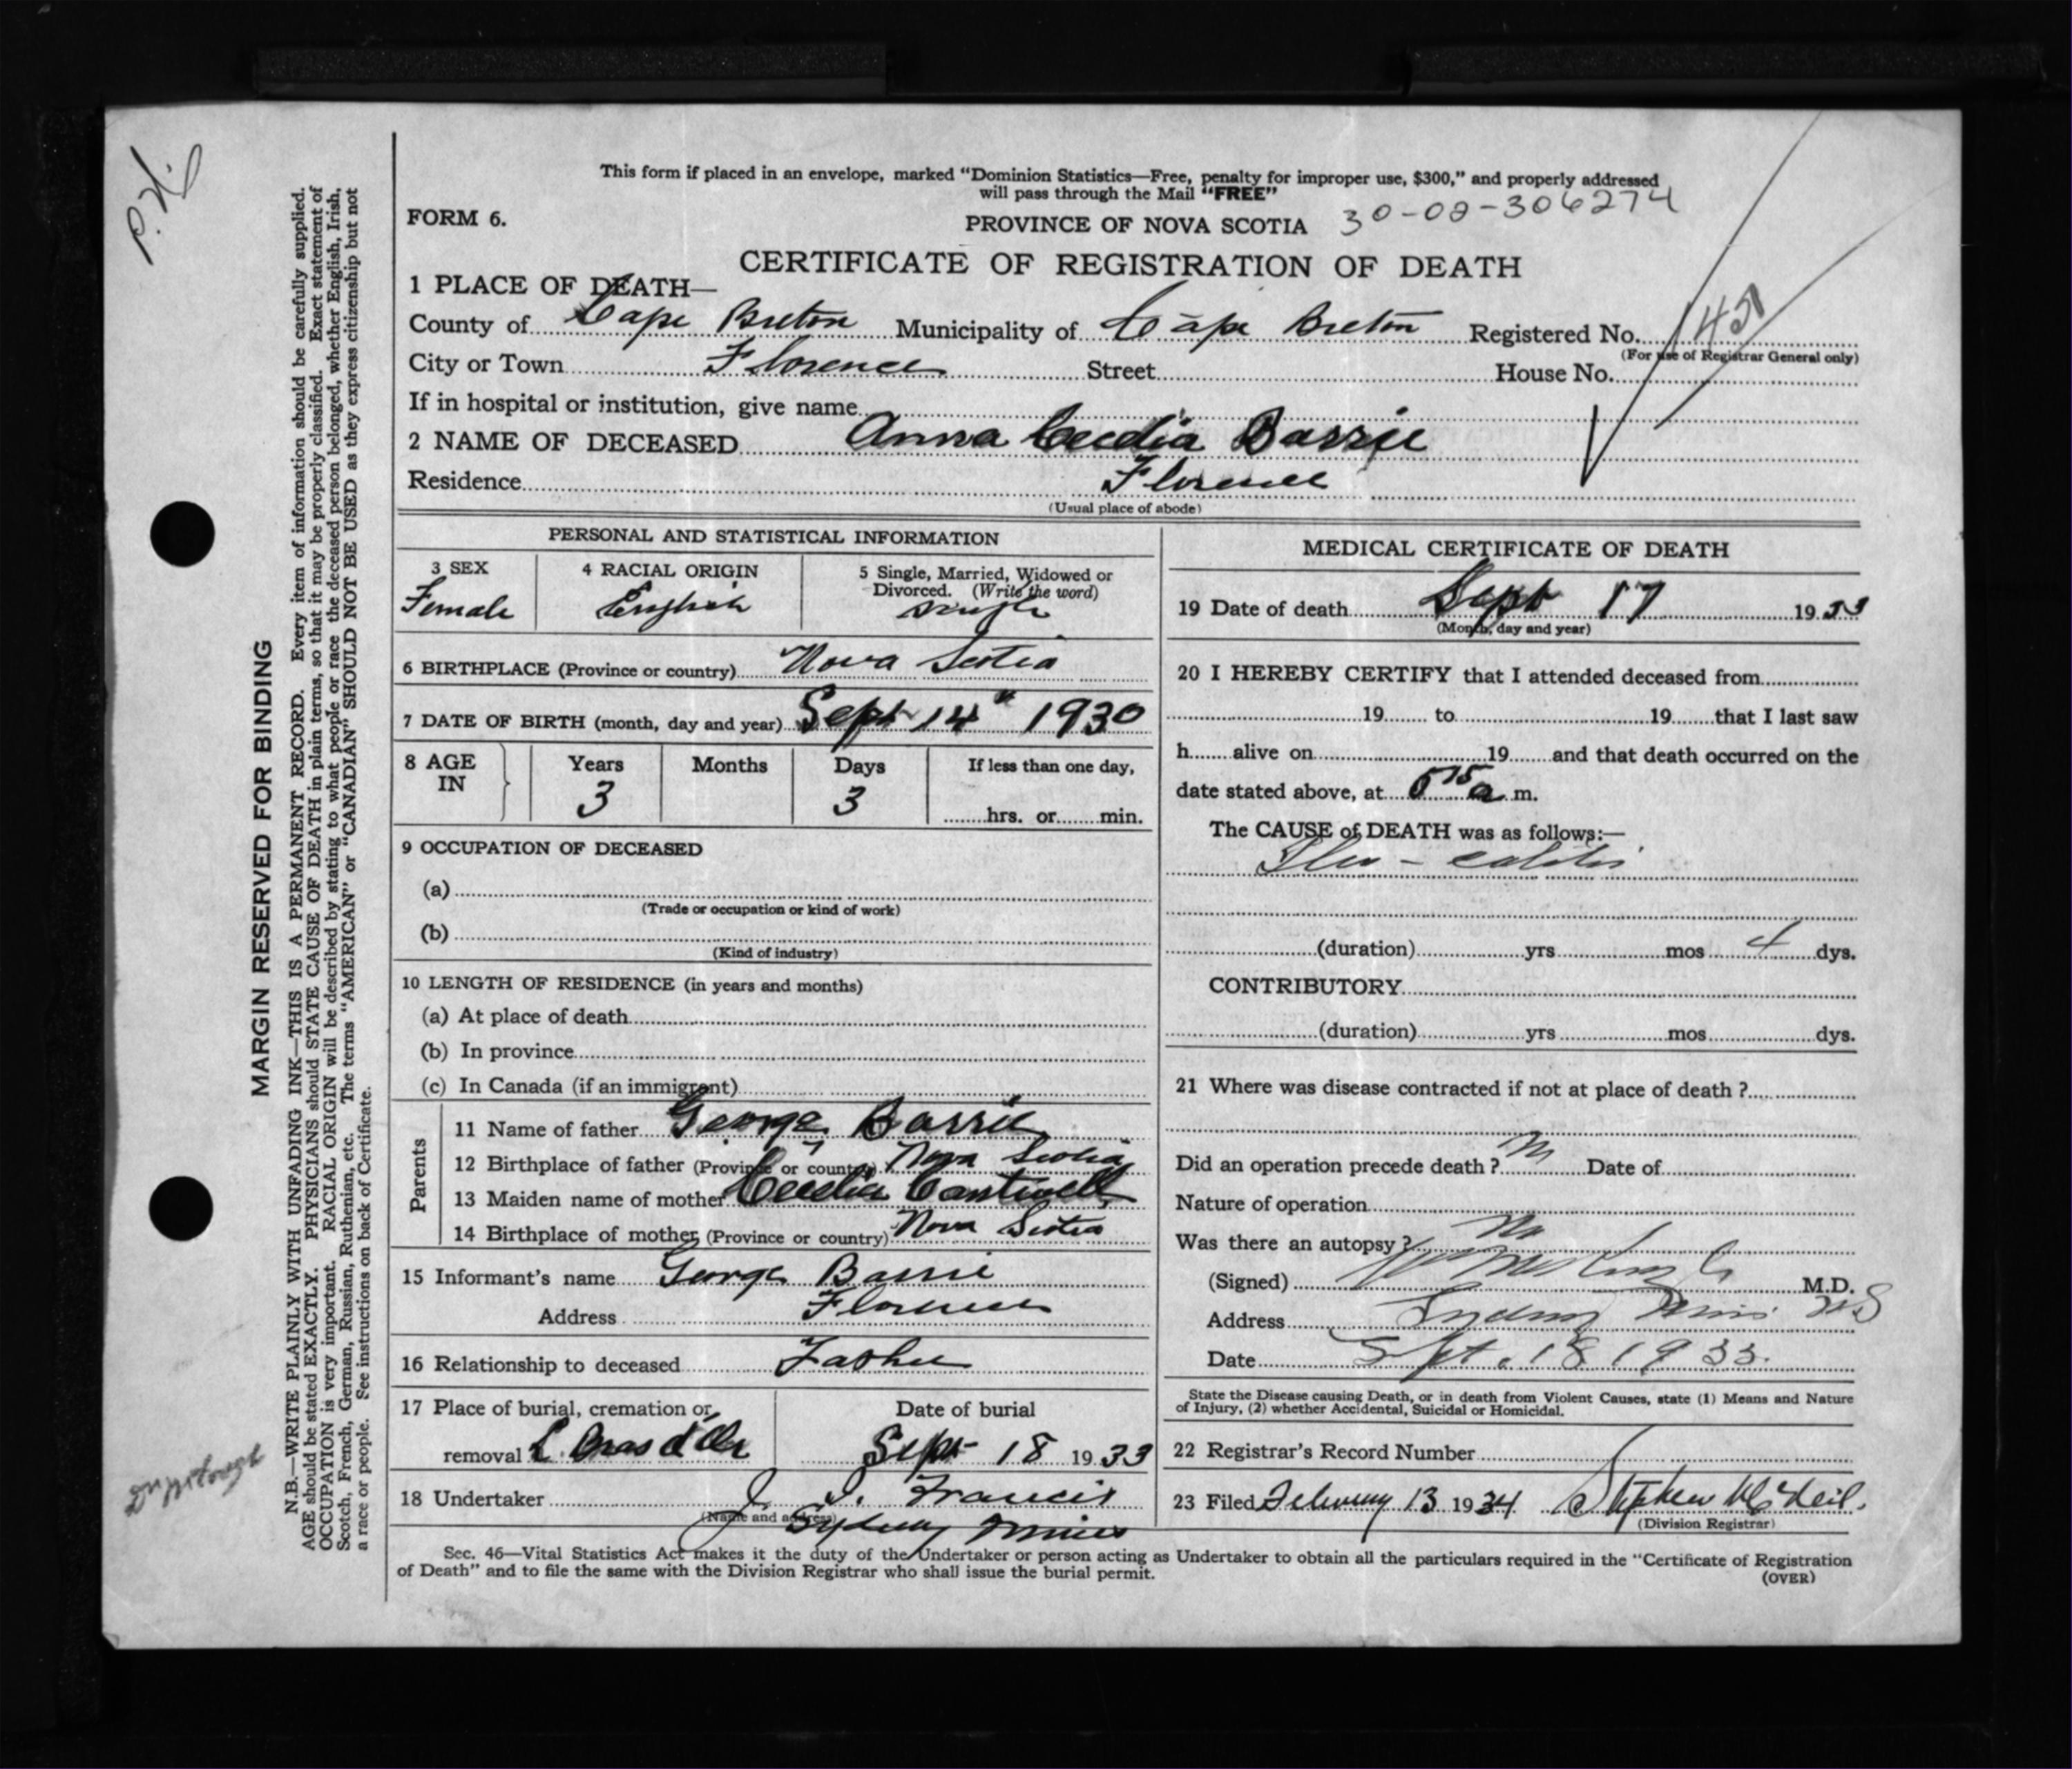 This form if placed in an envelope, marked "Dominion Statistics—Free, penalty for improper use, $300," and properly addressed
will pass through the Mail "FREE"
FORM 6.
PROVINCE OF NOVA SCOTIA 30-02-306274
CERTIFICATE OF REGISTRATION OF DEATH
1 PLACE OF DEATH—
County of Cape Breton Municipality of Cape Breton Registered No. 1451
(For use of Registrar General only)
City or Town Florence Street House No.
If in hospital or institution, give name
2 NAME OF DECEASED Anna Cecelia Barrie
Residence Florence
(Usual place of abode)
PERSONAL AND STATISTICAL INFORMATION
3 SEX 4 RACIAL ORIGIN 5 Single, Married, Widowed or
Divorced. (Write the word)
Female English Single
6 BIRTHPLACE (Province or country) Nova Scotia
7 DATE OF BIRTH (month, day and year) Sept 14 1930
8 AGE Years Months Days If less than one day,
IN 3 3 hrs. or min.
9 OCCUPATION OF DECEASED
(a)
(Trade or occupation or kind of work)
(b)
(Kind of industry)
10 LENGTH OF RESIDENCE (in years and months)
(a) At place of death
(b) In province
(c) In Canada (if an immigrant)
Parents
11 Name of father George Barrie
12 Birthplace of father (Province or country) Nova Scotia
13 Maiden name of mother Cecelia Cantwell
14 Birthplace of mother (Province or country) Nova Scotia
15 Informant's name George Barrie
Address Florence
16 Relationship to deceased Father
17 Place of burial, cremation or Date of burial
removal L. Bras d'Or Sept 18 1933
18 Undertaker J. J. Francis
(Name and address) Sydney Mines
MEDICAL CERTIFICATE OF DEATH
19 Date of death Sept 17 1933
(Month, day and year)
20 I HEREBY CERTIFY that I attended deceased from
19 to 19 that I last saw
h alive on 19 and that death occurred on the
date stated above, at 5 15 a m.
The CAUSE of DEATH was as follows:—
Ileo-colitis
(duration) yrs mos 4 dys.
CONTRIBUTORY
(duration) yrs mos dys.
21 Where was disease contracted if not at place of death ?
Did an operation precede death ? No Date of
Nature of operation
Was there an autopsy ? No
(Signed) M.D.
Address Sydney Mines NS
Date Sept. 18 1933.
State the Disease causing Death, or in death from Violent Causes, state (1) Means and Nature
of Injury, (2) whether Accidental, Suicidal or Homicidal.
22 Registrar's Record Number
23 Filed February 13 1934 Stephen McNeil.
(Division Registrar)
Sec. 46—Vital Statistics Act makes it the duty of the Undertaker or person acting as Undertaker to obtain all the particulars required in the "Certificate of Registration
of Death" and to file the same with the Division Registrar who shall issue the burial permit.
(OVER)
MARGIN RESERVED FOR BINDING
N.B.—WRITE PLAINLY WITH UNFADING INK—THIS IS A PERMANENT RECORD. Every item of information should be carefully supplied.
AGE should be stated EXACTLY. PHYSICIANS should STATE CAUSE OF DEATH in plain terms, so that it may be properly classified. Exact statement of
OCCUPATION is very important. RACIAL ORIGIN will be described by stating to what people or race the deceased person belonged, whether English, Irish,
Scotch, French, German, Russian, Ruthenian, etc. The terms "AMERICAN" or "CANADIAN" SHOULD NOT BE USED as they express citizenship but not
a race or people. See instructions on back of Certificate.